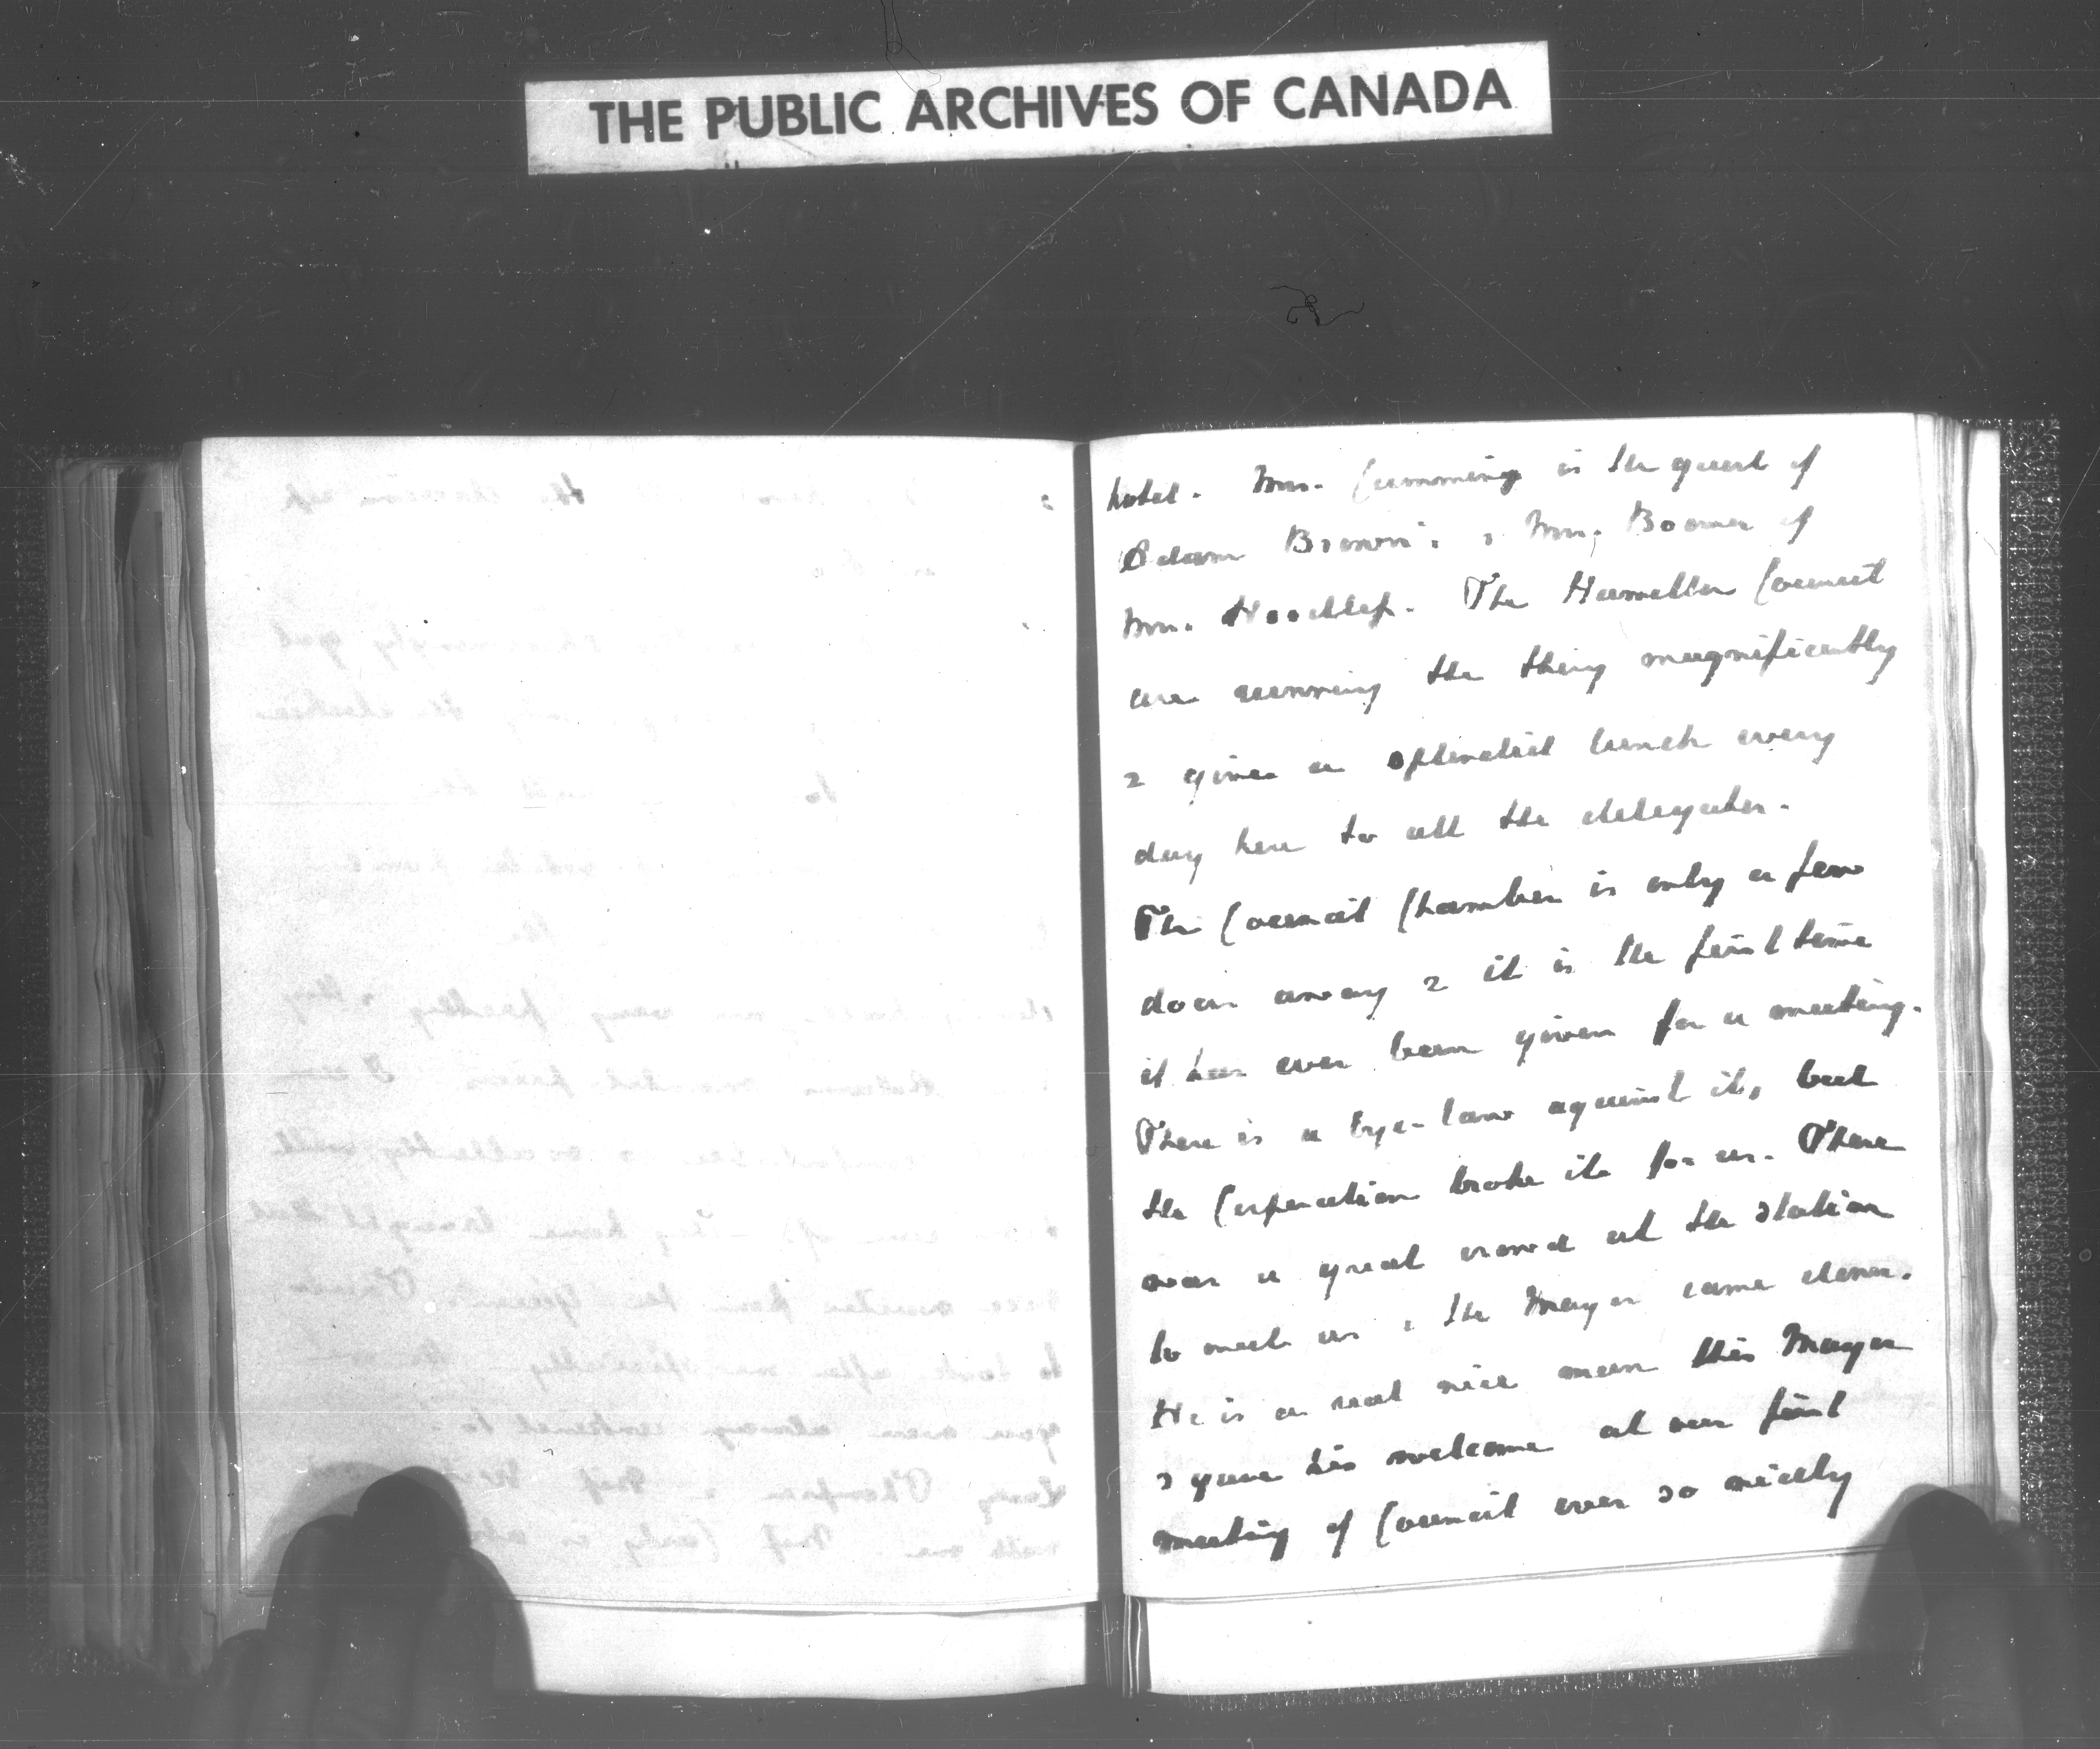 THE PUBLIC ARCHIVES OF CANADA
hotel. Mrs. Cumming is the guest of
Adam Browns. & Mrs. Boomer of
Mrs. Hoodless. The Hamilton Council
are running the thing magnificently
& give a splendid lunch every
day here to all the delegates.
The Council Chamber is only a few
doors away & it is the first time
it has ever been given for a meeting.
There is a bye-law against it, but
the Corporation broke it for us. There
was a great crowd at the station
to meet us & the Mayor came down.
He is a real nice man this Mayor
& gave his welcome at our first
meeting of Council ever so nicely